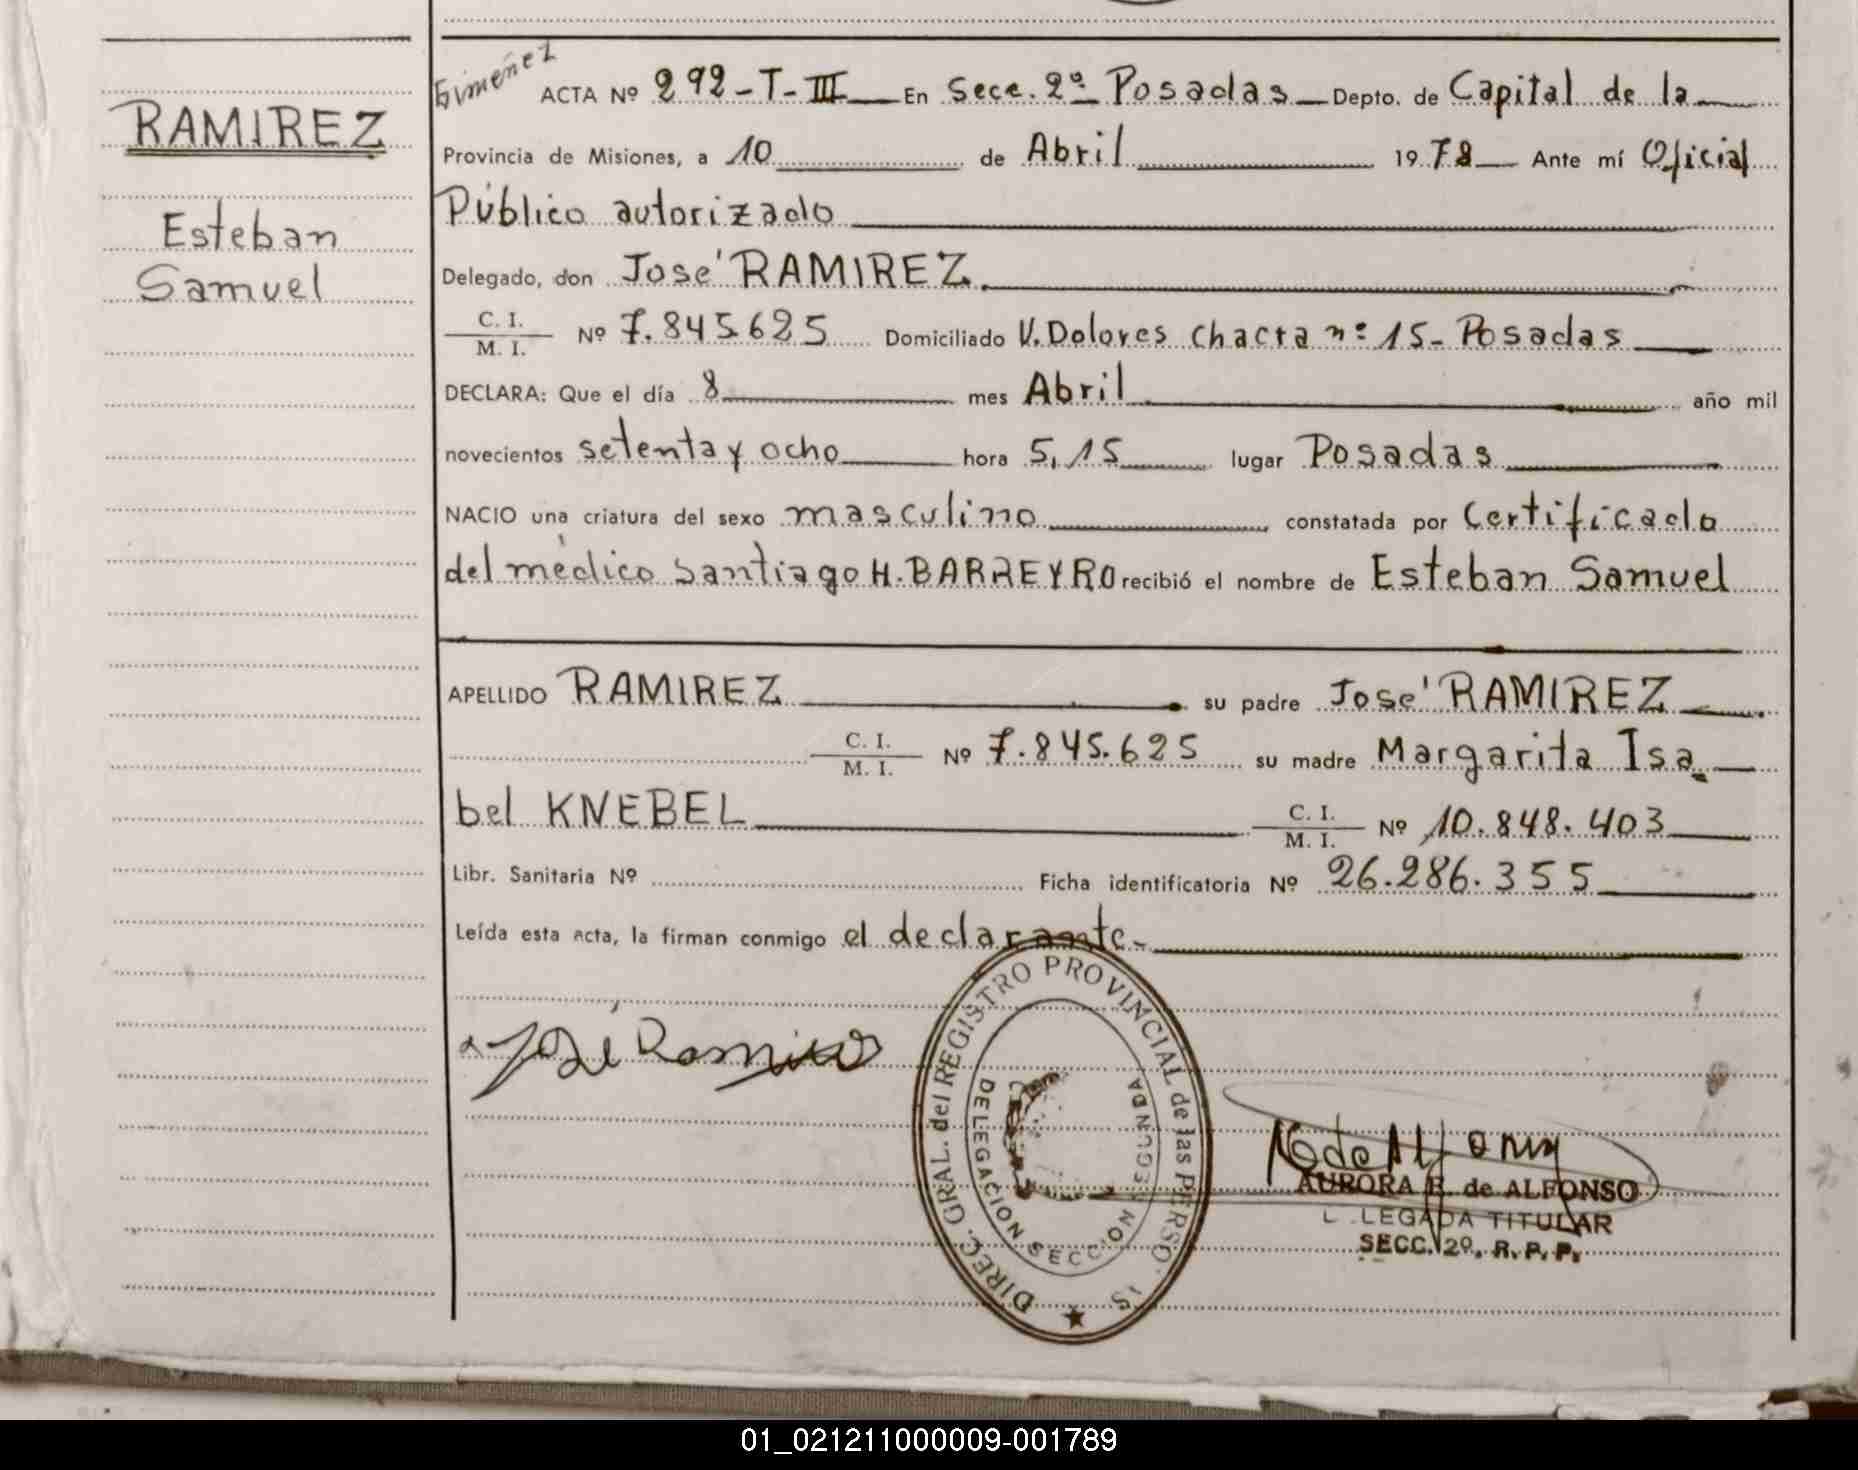 RAMIREZ
Esteban
Samuel
Gimeñez
ACTA Nº 292-T-III En Secc. 2ª Posadas Depto. de Capital de la
Provincia de Misiones, a 10 de Abril 1978 Ante mí Oficial
Público autorizado
Delegado, don José RAMIREZ
C. I.
M. I. Nº 7.845.625 Domiciliado V. Dolores Chacra nº 15- Posadas
DECLARA: Que el día 8 mes Abril año mil
novecientos setenta y ocho hora 5,15 lugar Posadas
NACIO una criatura del sexo masculino constatada por Certificado
del médico Santiago H. BARREYRO recibió el nombre de Esteban Samuel
APELLIDO RAMIREZ su padre José RAMIREZ
C. I.
M. I. Nº 7.845.625 su madre Margarita Isa
bel KNEBEL C. I.
M. I. Nº 10.848.403
Libr. Sanitaria Nº Ficha identificatoria Nº 26.286.355
Leída esta acta, la firman conmigo el declarante.-
José Ramirez
DIREC. GRAL. del REGISTRO PROVINCIAL de las PERSO
DELEGACION SECCION SEGUNDA
AURORA E. de ALFONSO
LEGADA TITULAR
SECC. 2º. R. P. P.
01_021211000009-001789